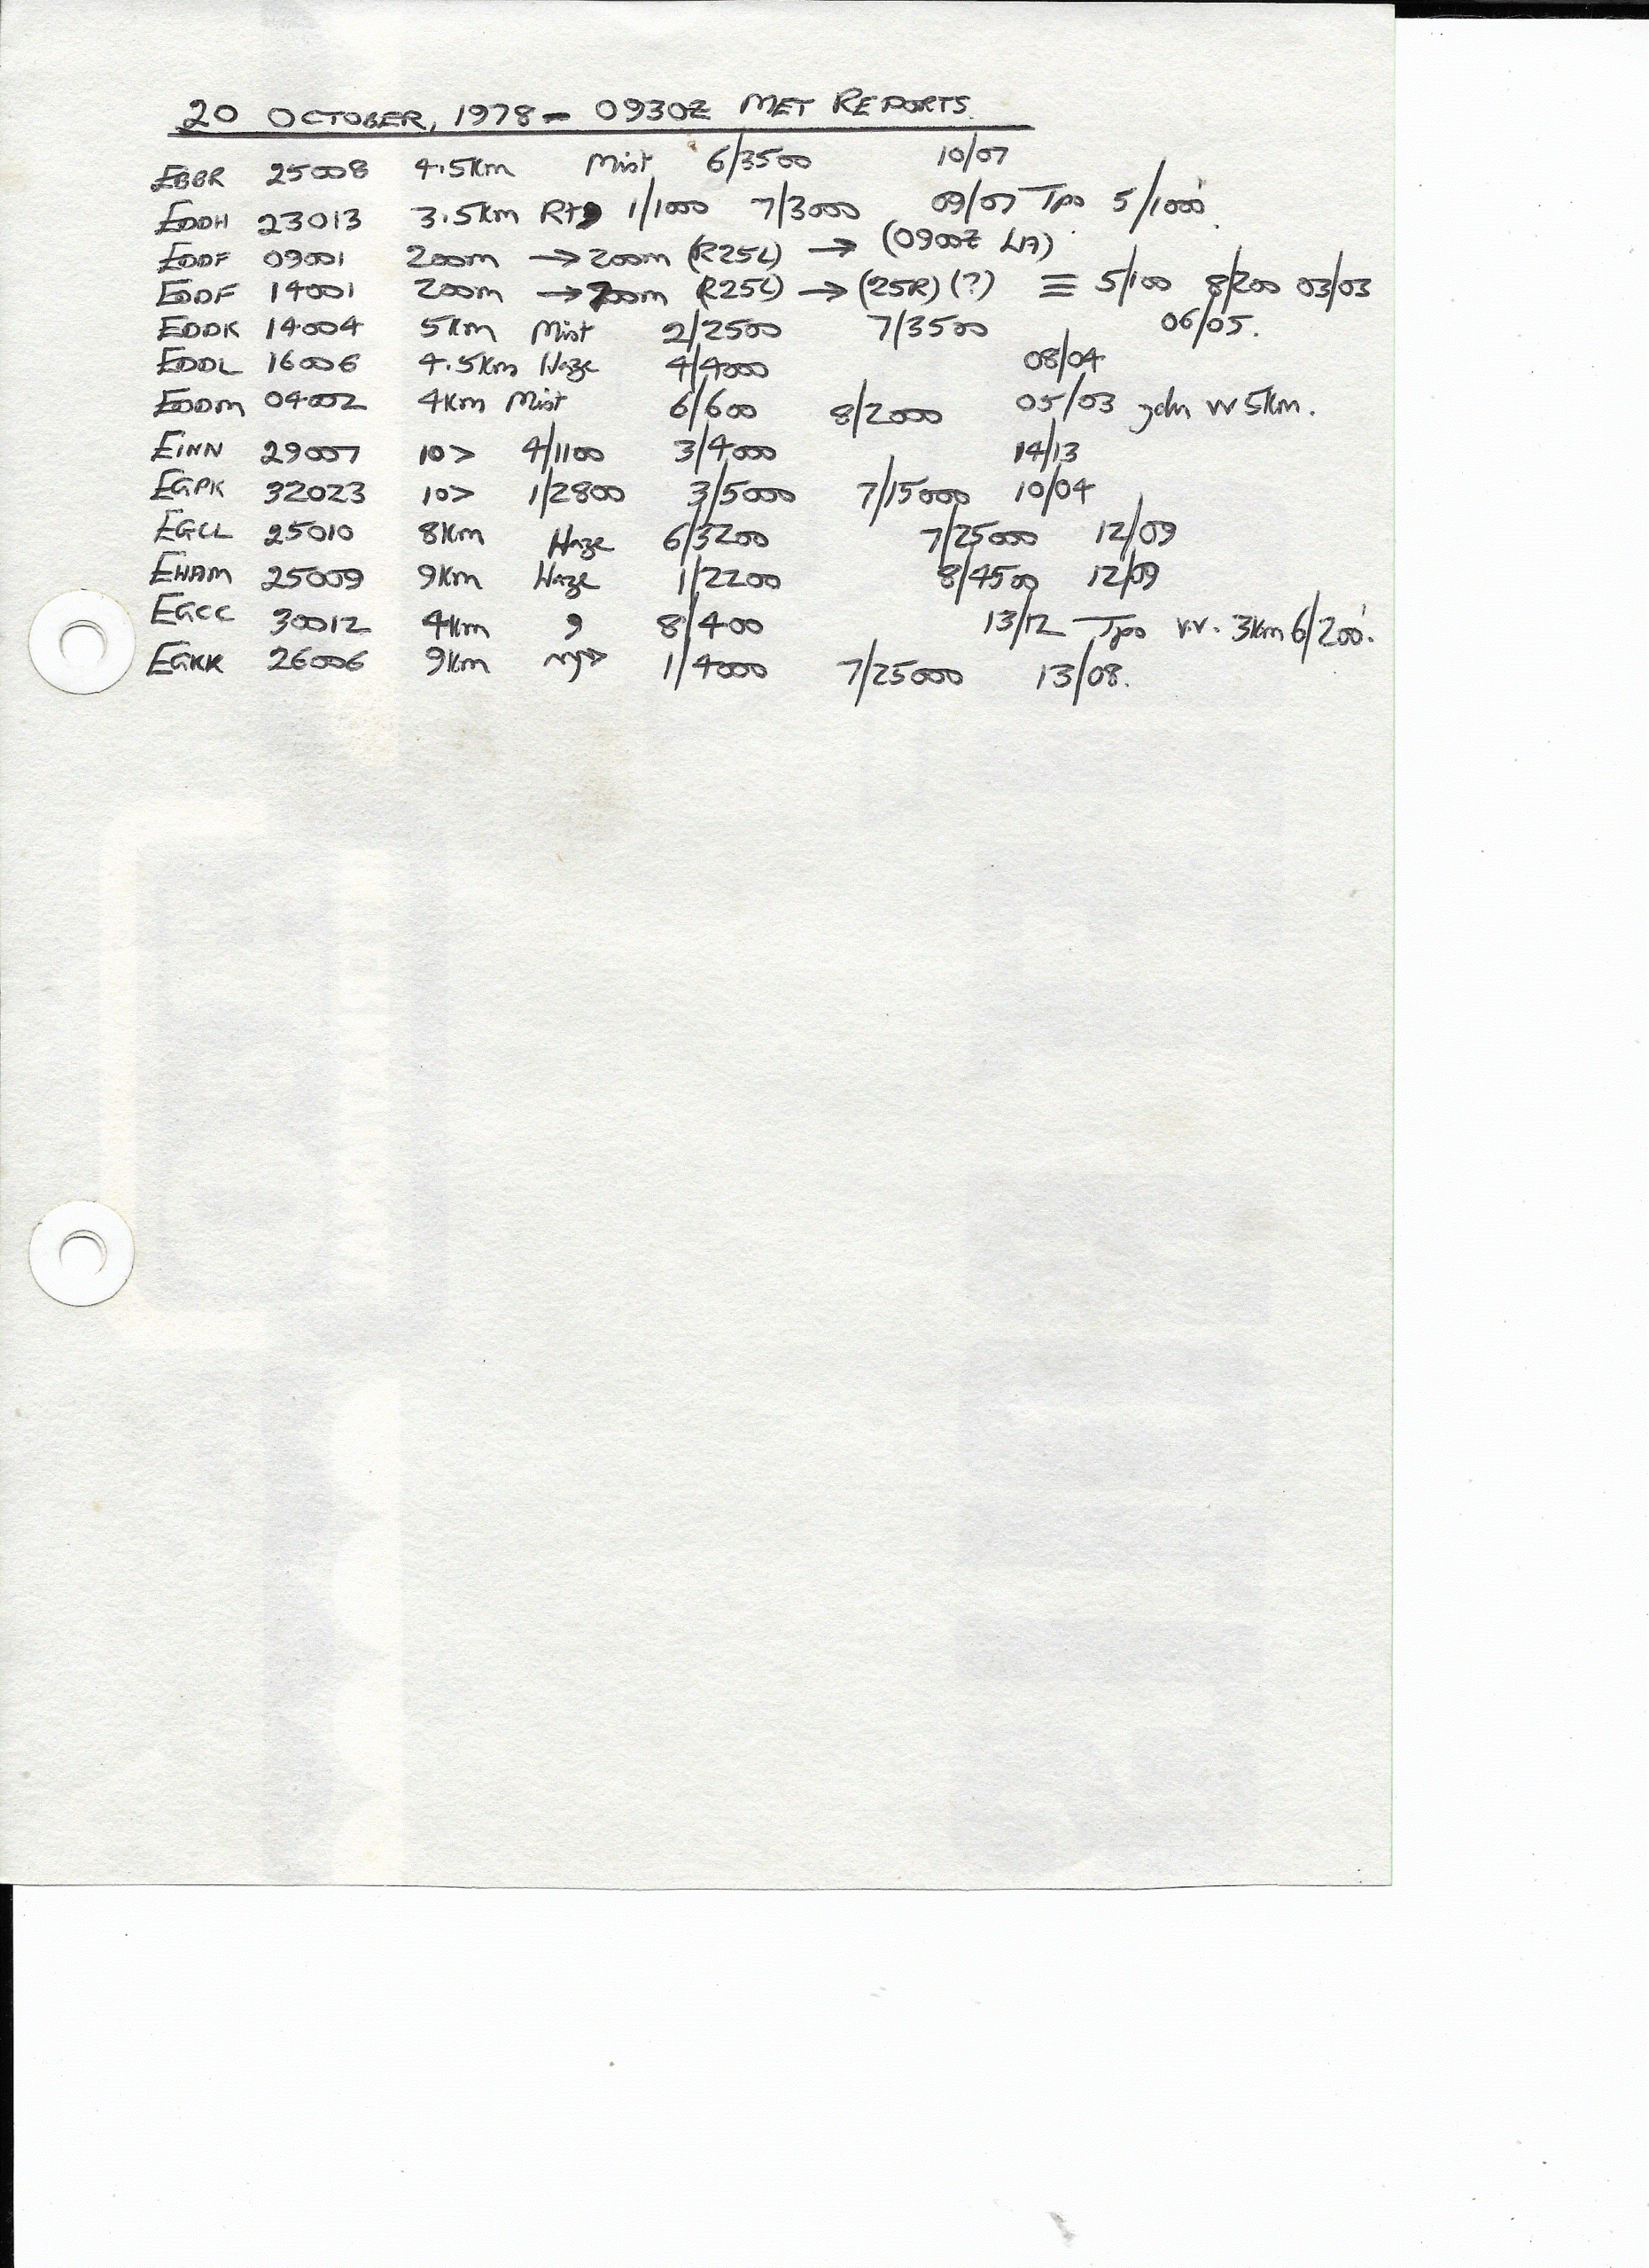 20 OCTOBER, 1978 - 0930Z MET REPORTS.
EBBR 25008 4.5Km Mist 6/3500 10/07
EDDH 23013 3.5Km R+, 1/1000 7/3000 09/07 Tpo 5/1000'.
EDDF 09001 200m → 200m (R25L) → (0900Z LA)
EDDF 14001 200m → 200m (R25L) → (25R) (?) ≡ 5/100 8/200 03/03
EDDK 14004 5Km Mist 2/2500 7/3500 06/05.
EDDL 16006 4.5Km Haze 4/4000 08/04
EDDM 04002 4Km Mist 6/600 8/2000 05/03 VV 5Km.
EINN 29007 10> 4/1100 3/4000 14/13
EGPK 32023 10> 1/2800 3/5000 7/15000 10/04
EGLL 25010 8Km Haze 6/3200 7/25000 12/09
EHAM 25009 9Km Haze 1/2200 8/4500 12/09
EGCC 30012 4Km , 8/400 13/12 Tpo v.v. 3Km 6/200'.
EGKK 26006 9Km 1/4000 7/25000 13/08.